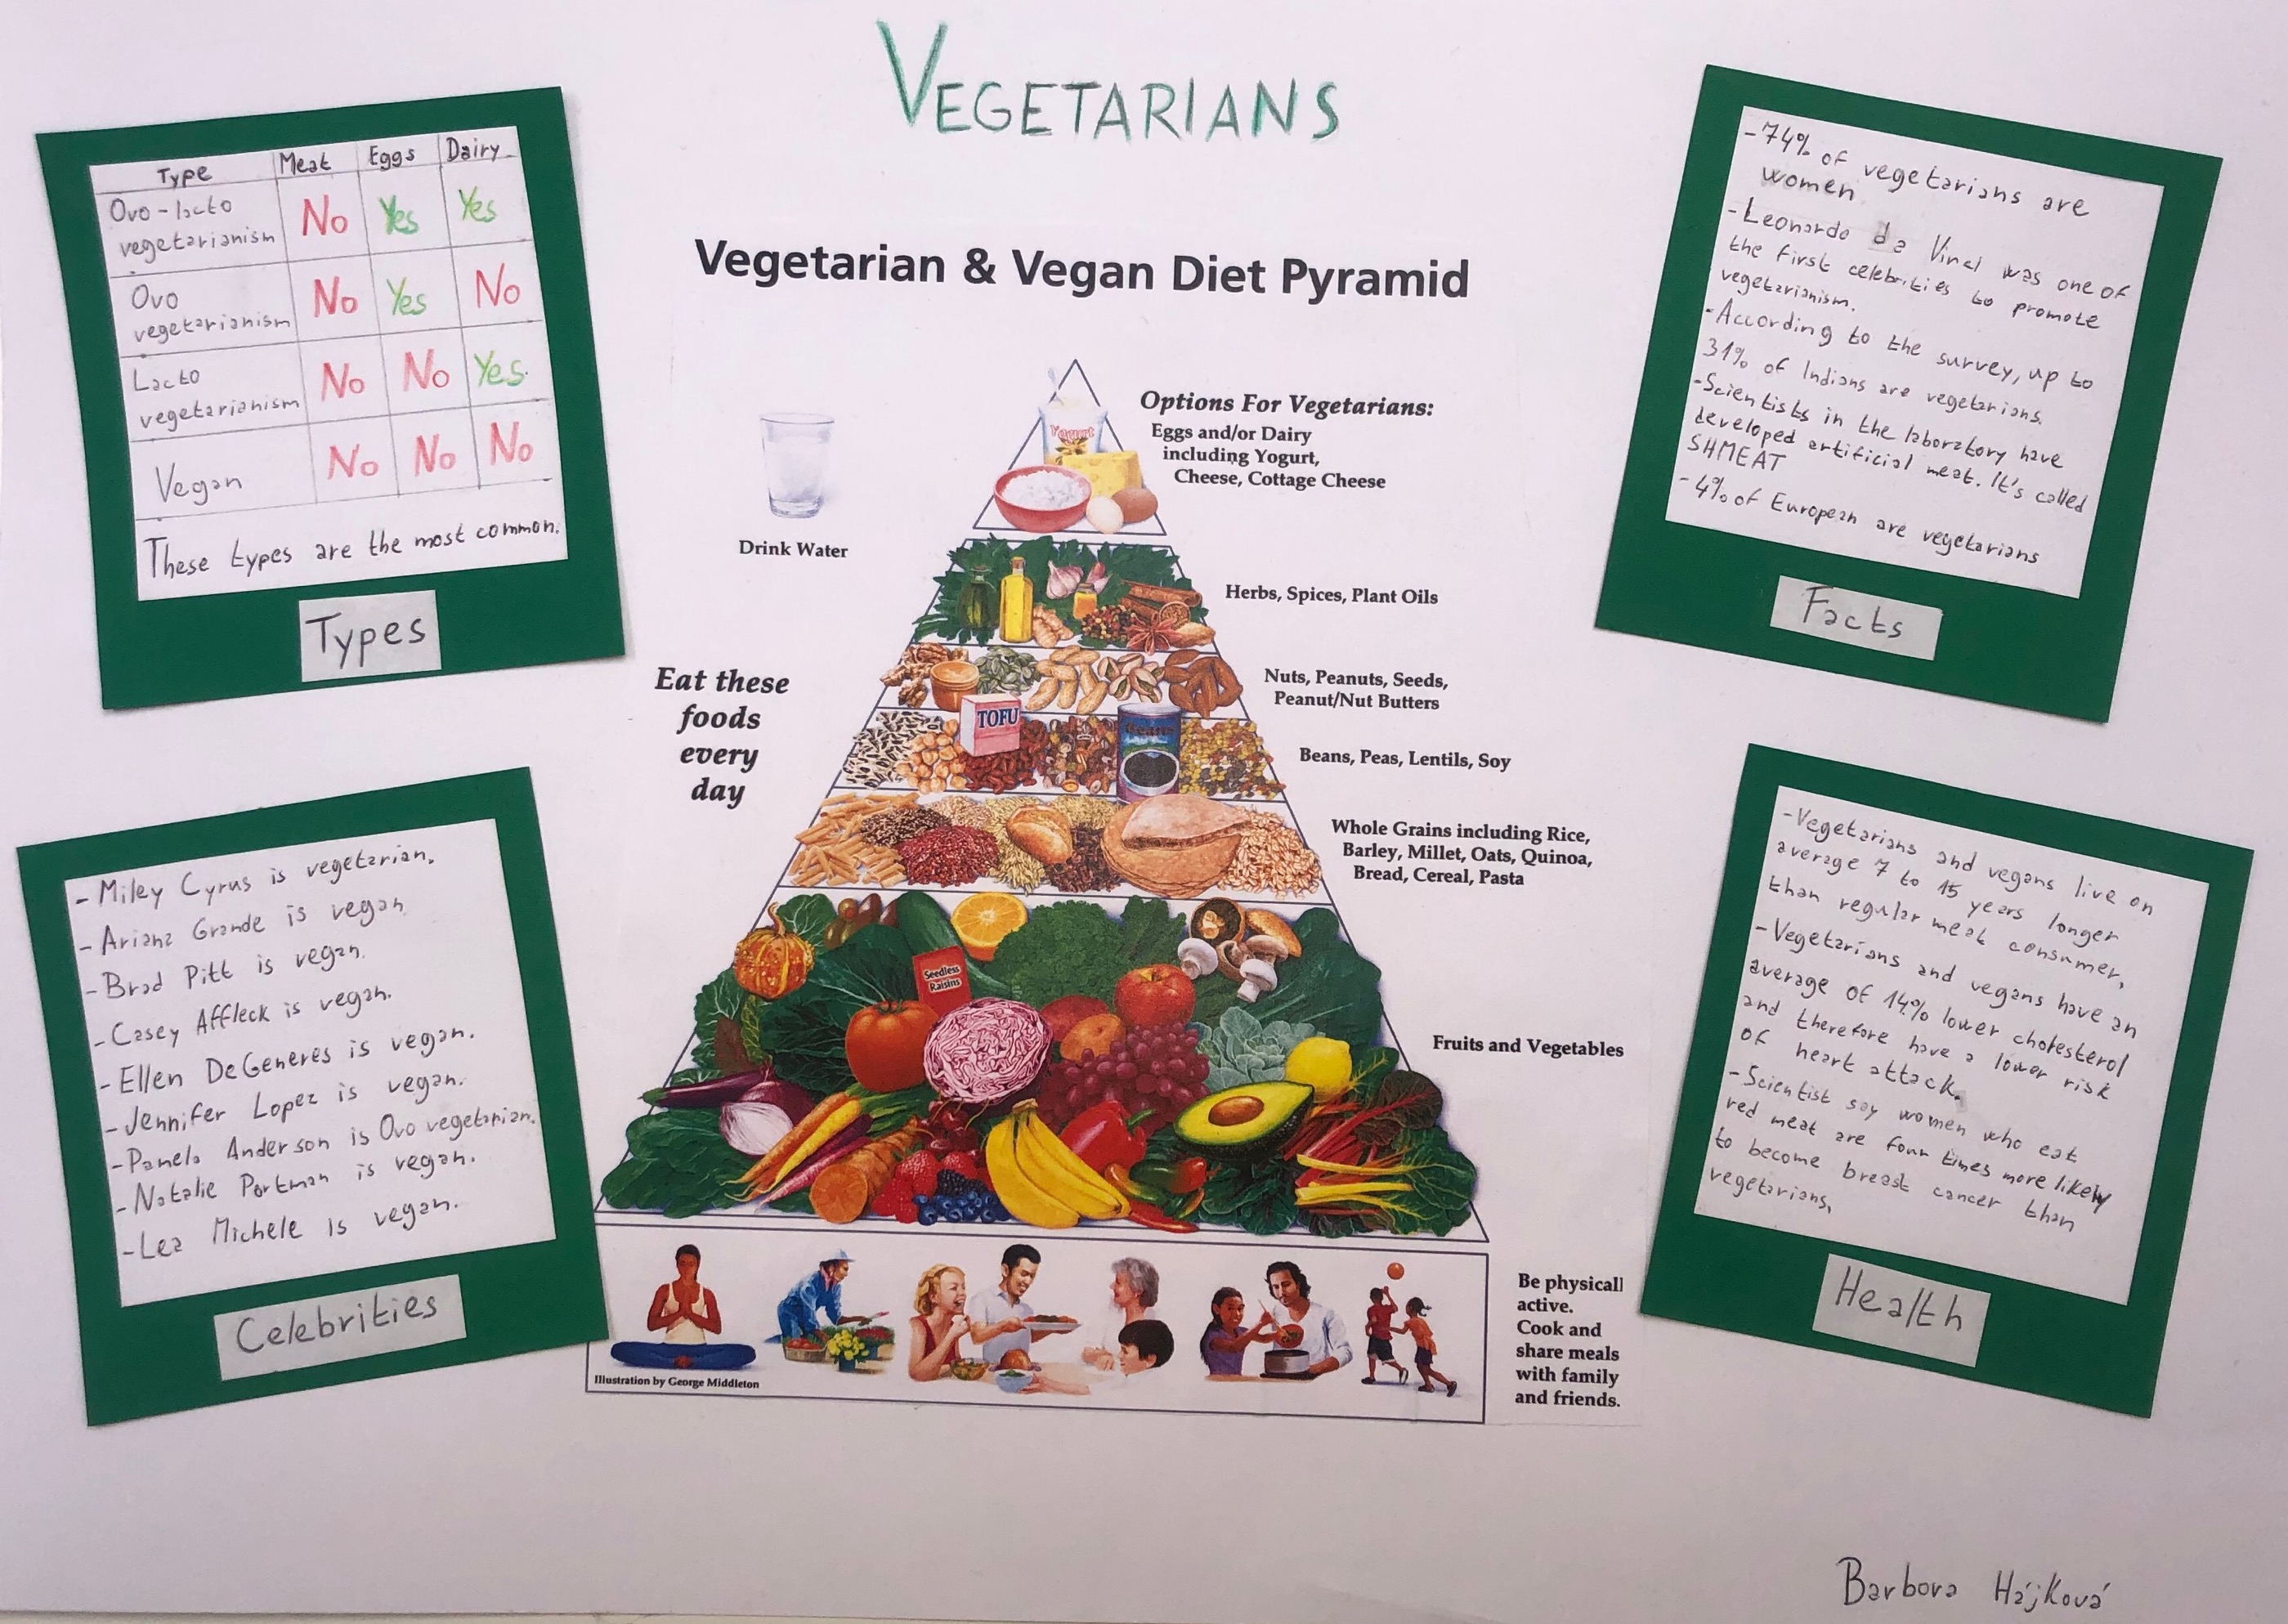 VEGETARIANS
Type Meat Eggs Dairy
Ovo-lacto
vegetarianism No Yes Yes
Ovo
vegetarianism No Yes No
Lacto
vegetarianism No No Yes.
Vegan No No No
These types are the most common.
Types
- Miley Cyrus is vegetarian.
- Ariana Grande is vegan
- Brad Pitt is vegan.
- Casey Affleck is vegan.
- Ellen DeGeneres is vegan.
- Jennifer Lopez is vegan.
- Pamela Anderson is Ovo vegetarian.
- Natalie Portman is vegan.
- Lea Michele is vegan.
Celebrities
Vegetarian & Vegan Diet Pyramid
Yogurt
Options For Vegetarians:
Eggs and/or Dairy
including Yogurt,
Cheese, Cottage Cheese
Drink Water
Herbs, Spices, Plant Oils
Eat these
foods
every
day
Nuts, Peanuts, Seeds,
Peanut/Nut Butters
TOFU
Beans
Beans, Peas, Lentils, Soy
Whole Grains including Rice,
Barley, Millet, Oats, Quinoa,
Bread, Cereal, Pasta
Seedless
Raisins
Fruits and Vegetables
Illustration by George Middleton
Be physicall
active.
Cook and
share meals
with family
and friends.
- 74% of vegetarians are
women
- Leonardo da Vinci was one of
the first celebrities to promote
vegetarianism.
- According to the survey, up to
31% of Indians are vegetarians.
- Scientists in the laboratory have
developed artificial meat. It's called
SHMEAT
- 4% of European are vegetarians
Facts
- Vegetarians and vegans live on
average 7 to 15 years longer
than regular meat consumer,
- Vegetarians and vegans have an
average of 14% lower cholesterol
and therefore have a lower risk
of heart attack.
- Scientist say women who eat
red meat are four times more likely
to become breast cancer than
vegetarians,
Health
Barbora Hájková